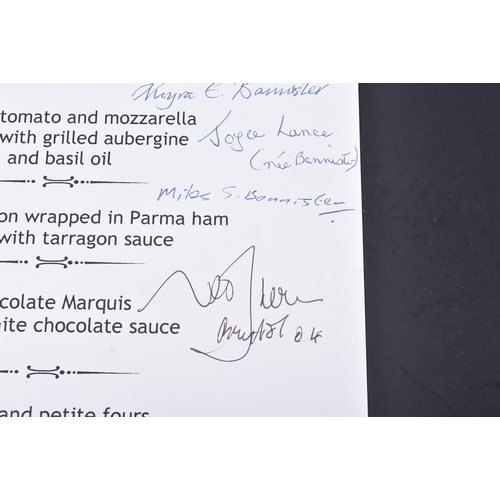 Moyra E. Bannister
tomato and mozzarella
with grilled aubergine
and basil oil
Joyce Lance
(née Bannister)
Miles S. Bannister
on wrapped in Parma ham
with tarragon sauce
ocolate Marquis
ite chocolate sauce
04
and petite fours